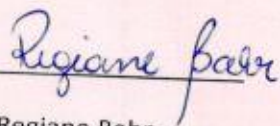 Regiane Bahr
Regiane Bahr